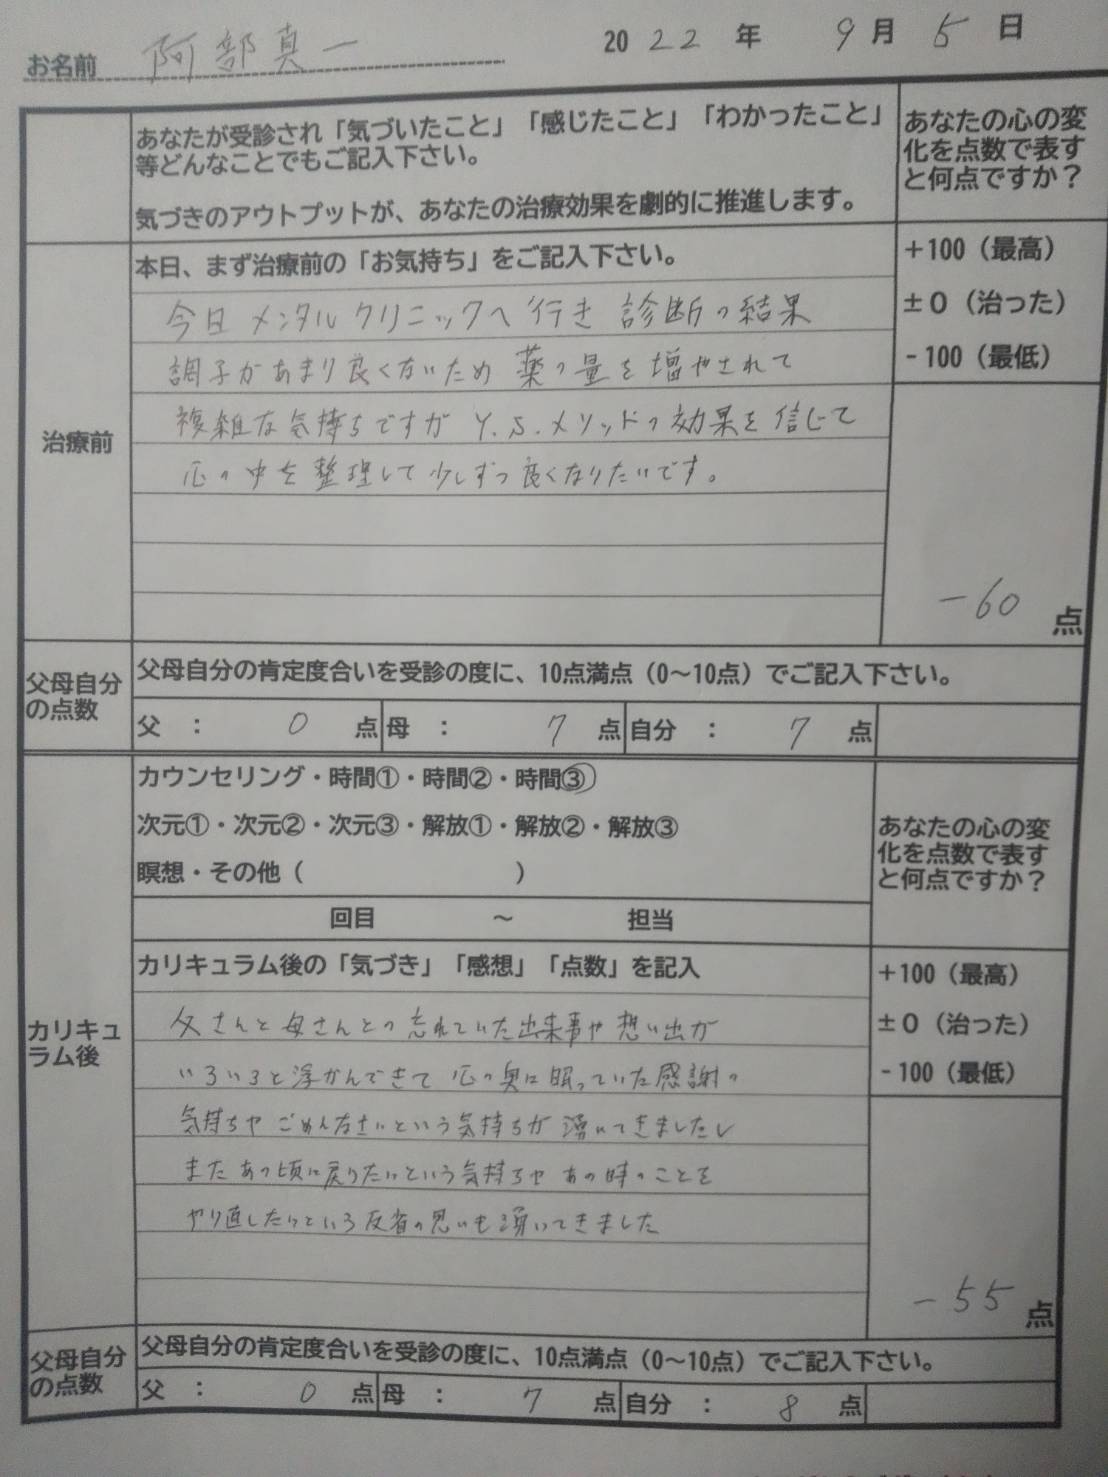 お名前 阿部真一 2022年 9月 5日
あなたが受診され「気づいたこと」「感じたこと」「わかったこと」
等どんなことでもご記入下さい。
気づきのアウトプットが、あなたの治療効果を劇的に推進します。
あなたの心の変
化を点数で表す
と何点ですか？
治療前
本日、まず治療前の「お気持ち」をご記入下さい。
今日メンタルクリニックへ行き 診断の結果
調子があまり良くないため 薬の量を増やされて
複雑な気持ちですが Y.S.メソッドの効果を信じて
心の中を整理して少しずつ良くなりたいです。
+100（最高）
±0（治った）
-100（最低）
-60 点
父母自分
の点数
父母自分の肯定度合いを受診の度に、10点満点（0～10点）でご記入下さい。
父 ： 0 点 母 ： 7 点 自分 ： 7 点
カウンセリング・時間①・時間②・時間③
次元①・次元②・次元③・解放①・解放②・解放③
瞑想・その他（ ）
回目 ～ 担当
あなたの心の変
化を点数で表す
と何点ですか？
カリキュ
ラム後
カリキュラム後の「気づき」「感想」「点数」を記入
父さんと母さんとの忘れていた出来事や想い出が
いろいろと浮かんできて 心の奥に眠っていた感謝の
気持ちや ごめんなさいという気持ちが 湧いてきましたし
また あの頃に戻りたいという気持ちや あの時のことを
やり直したいという反省の思いも湧いてきました
+100（最高）
±0（治った）
-100（最低）
-55 点
父母自分
の点数
父母自分の肯定度合いを受診の度に、10点満点（0～10点）でご記入下さい。
父 ： 0 点 母 ： 7 点 自分 ： 8 点